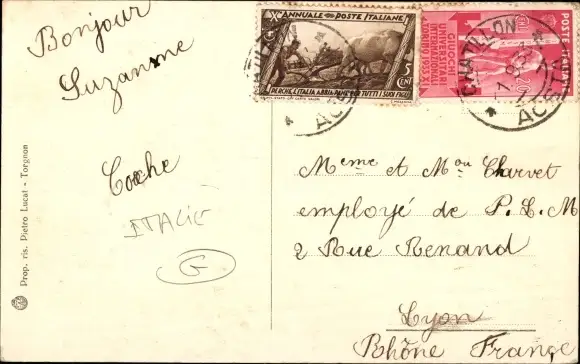 Bonjour
Suzanne
Coche
ITALIE
G
Prop. ris. Pietro Lucat - Torgnon
Xº ANNUALE POSTE ITALIANE
5
CENT
PERCHE L'ITALIA ABBIA PANE PER TUTTI I SUOI FIGLI
POSTE ITALIANE
GIUOCHI
UNIVERSITARI
INTERNAZIONALI
TORINO 1933
CHATILLON
AOSTA
Meme et Mou Charvet
employé de P. L. M
2 Rue Renand
Lyon
Rhône France